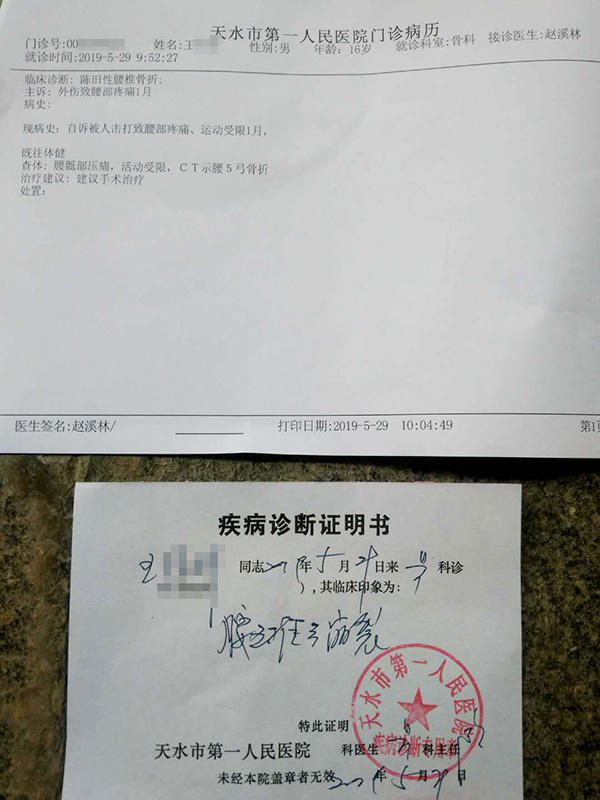 天水市第一人民医院门诊病历
门诊号:00 姓名:王 性别:男 年龄:16岁 就诊科室:骨科 接诊医生:赵溪林
就诊时间:2019-5-29 9:52:27
临床诊断: 陈旧性腰椎骨折;
主诉: 外伤致腰部疼痛1月
病史:
现病史: 自诉被人击打致腰部疼痛、运动受限1月,
既往体健
查体: 腰骶部压痛, 活动受限, CT示腰5弓骨折
治疗建议: 建议手术治疗
处置:
医生签名:赵溪林/ 打印日期:2019-5-29 10:04:49 第1页
疾病诊断证明书
王 同志 年5月29日来骨科诊
),其临床印象为:
腰5椎弓崩裂
天水市第一人民医院
疾病诊断专用章
特此证明
天水市第一人民医院 科医生 科主任
未经本院盖章者无效 年5月29日